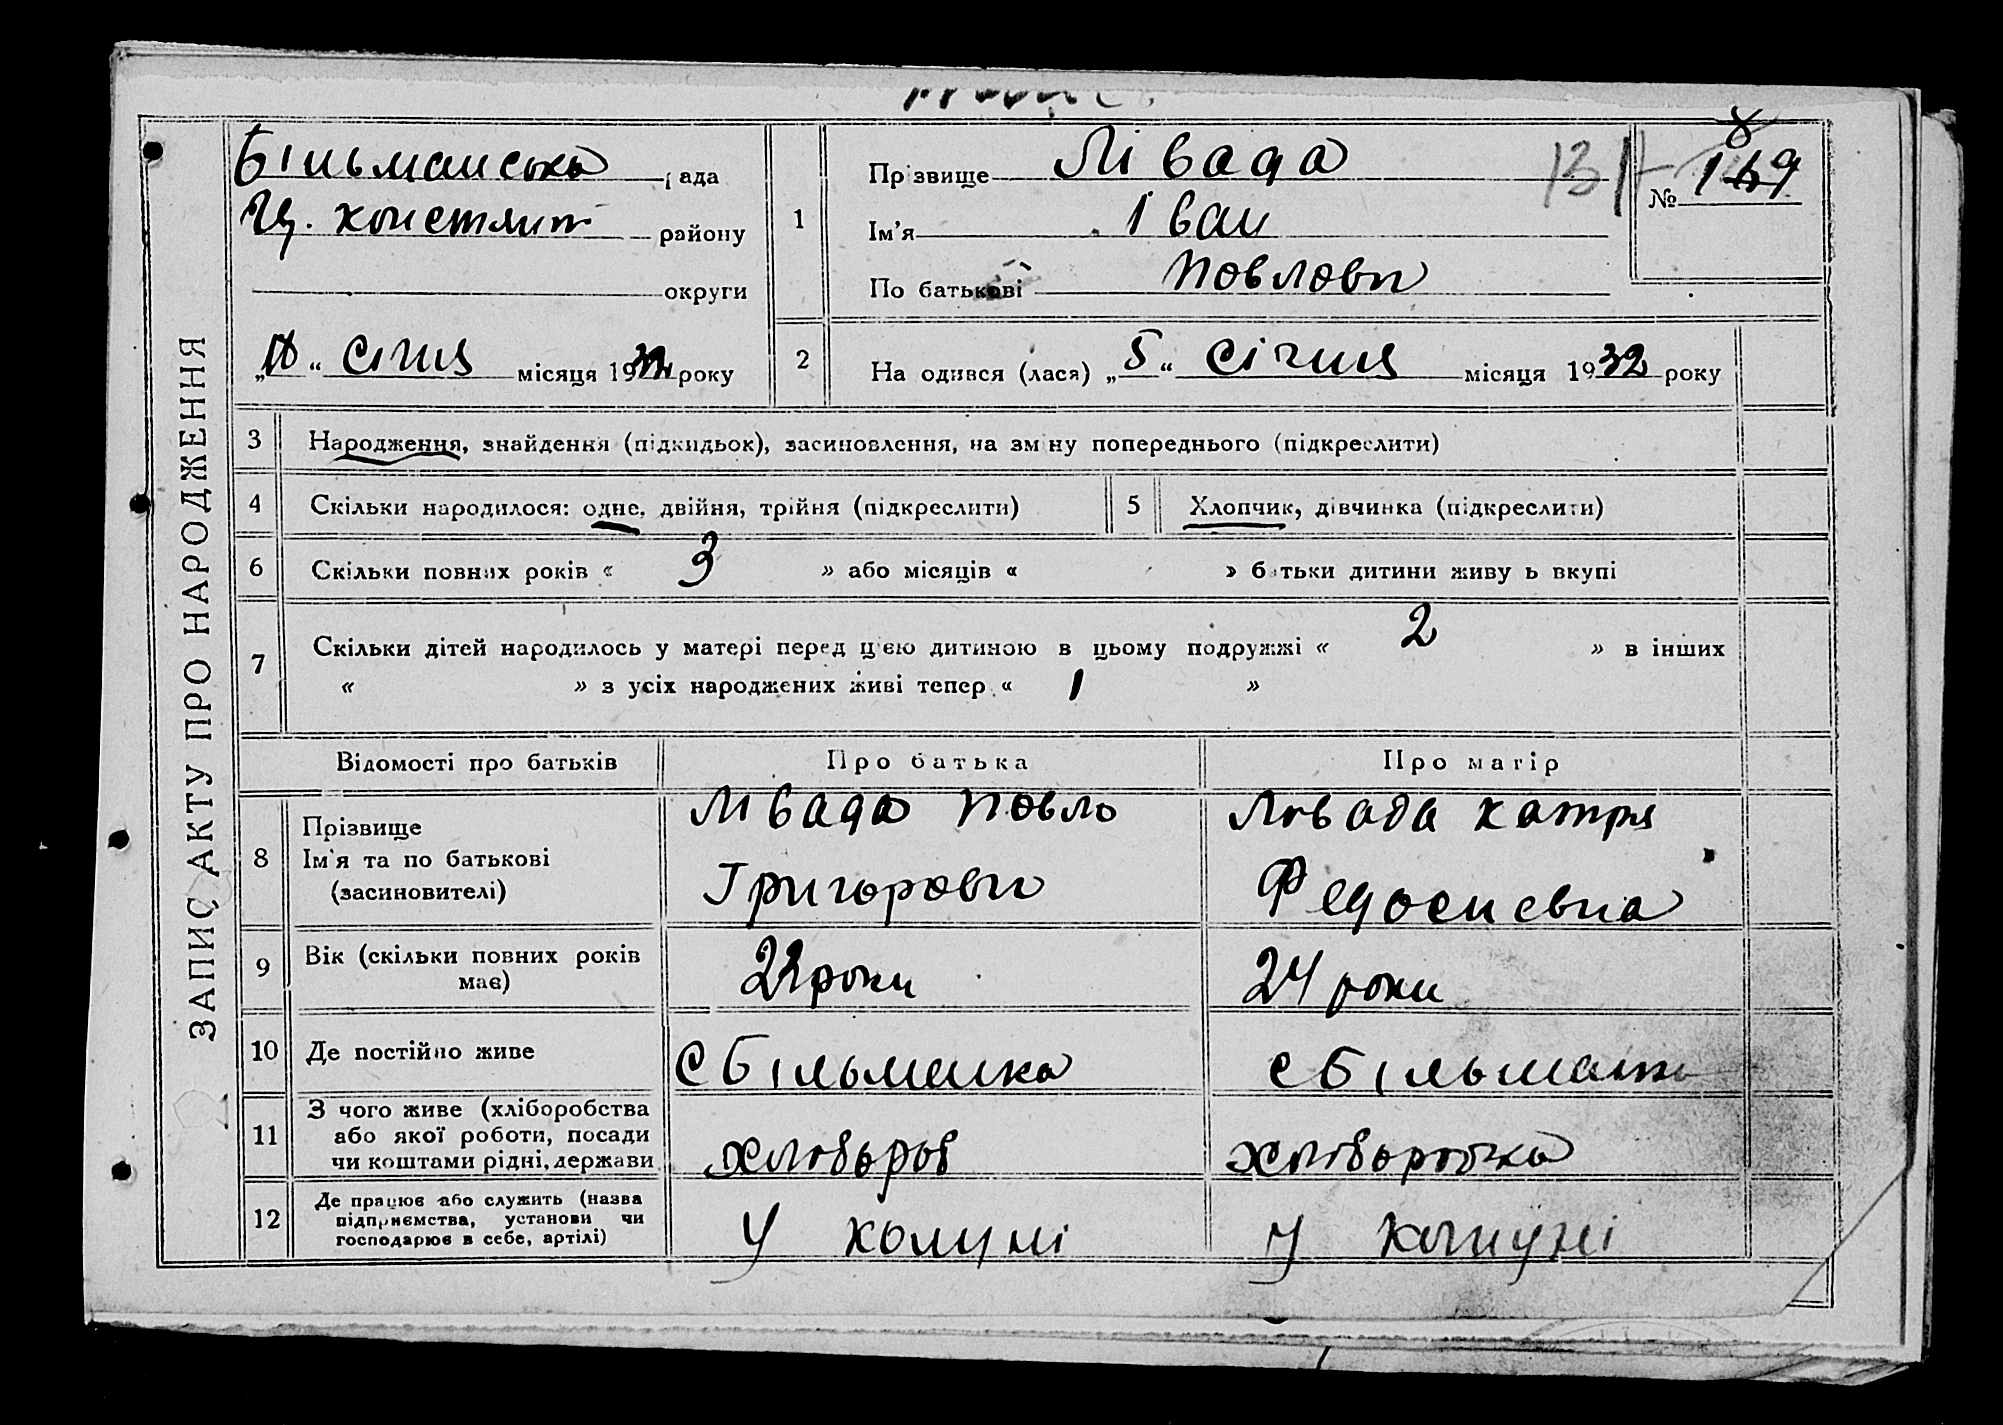 ЗАПИС АКТУ ПРО НАРОДЖЕННЯ
Більманська рада
Цар. Констянт району
округи
„10“ Січня місяця 1932 року
1
Прізвище Лівада
Ім'я Іван
По батькові Повлови
131
№ 189
2
На одився (лася) „5“ Січня місяця 1932 року
3 Народження, знайдення (підкидьок), засиновлення, на зміну попереднього (підкреслити)
4 Скільки народилося: одне, двійня, трійня (підкреслити)
5 Хлопчик, дівчинка (підкреслити)
6 Скільки повних років « 3 » або місяців « » батьки дитини живуть вкупі
7 Скільки дітей народилось у матері перед цією дитиною в цьому подружжі « 2 » в інших
« » з усіх народжених живі тепер « 1 »
Відомості про батьків Про батька Про матір
8 Прізвище
Ім'я та по батькові
(засиновителі)
Лівада Повло
Григорови
Ливада Катря
Федосиевна
9 Вік (скільки повних років
має)
22 роки
24 роки
10 Де постійно живе
С Більманка
с Більман
11 З чого живе (хліборобства
або якої роботи, посади
чи коштами рідні, держави
хлібороб
хліборобка
12 Де працює або служить (назва
підприємства, установи чи
господарює в себе, артілі)
У комуні
У комуні